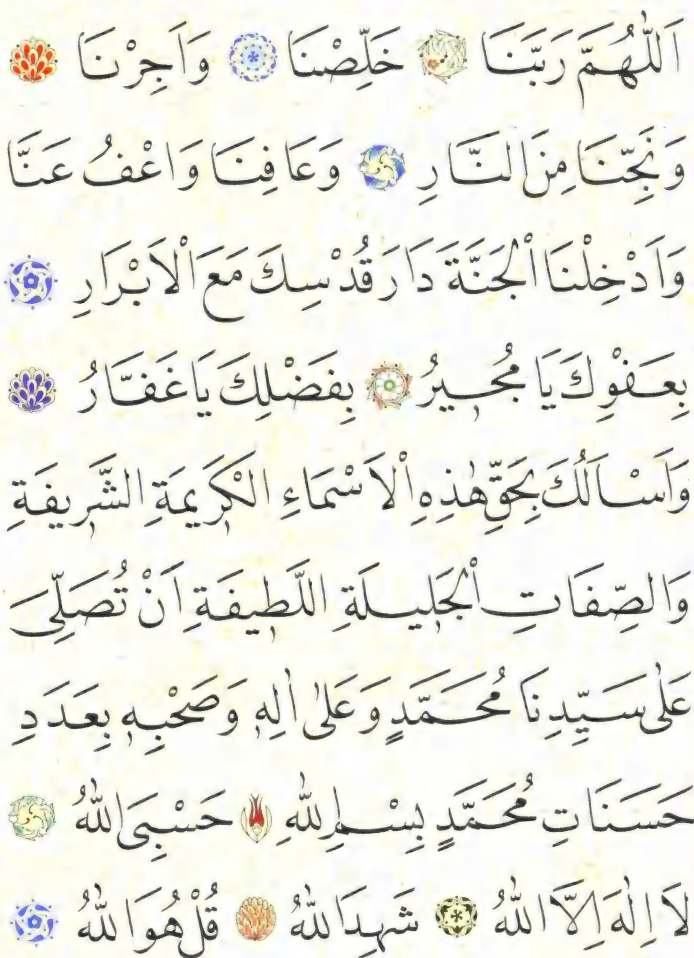 اَللّٰهُمَّ رَبَّنَا خَلِّصْنَا وَاَجِرْنَا
وَنَجِّنَا مِنَ النَّارِ وَعَافِنَا وَاعْفُ عَنَّا
وَاَدْخِلْنَا الْجَنَّةَ دَارَ قُدْسِكَ مَعَ الْاَبْرَارِ
بِعَفْوِكَ يَا مُجِيرُ بِفَضْلِكَ يَا غَفَّارُ
وَاَسْاَلُكَ بِحَقِّ هٰذِهِ الْاَسْمَاءِ الْكَرِيمَةِ الشَّرِيفَةِ
وَالصِّفَاتِ الْجَلِيلَةِ اللَّطِيفَةِ اَنْ تُصَلِّىَ
عَلٰى سَيِّدِنَا مُحَمَّدٍ وَعَلٰى اٰلِهِ وَصَحْبِهِ بِعَدَدِ
حَسَنَاتِ مُحَمَّدٍ بِسْمِ اللّٰهِ حَسْبِىَ اللّٰهُ
لَا اِلٰهَ اِلَّا اللّٰهُ شَهِدَ اللّٰهُ قُلْ هُوَ اللّٰهُ